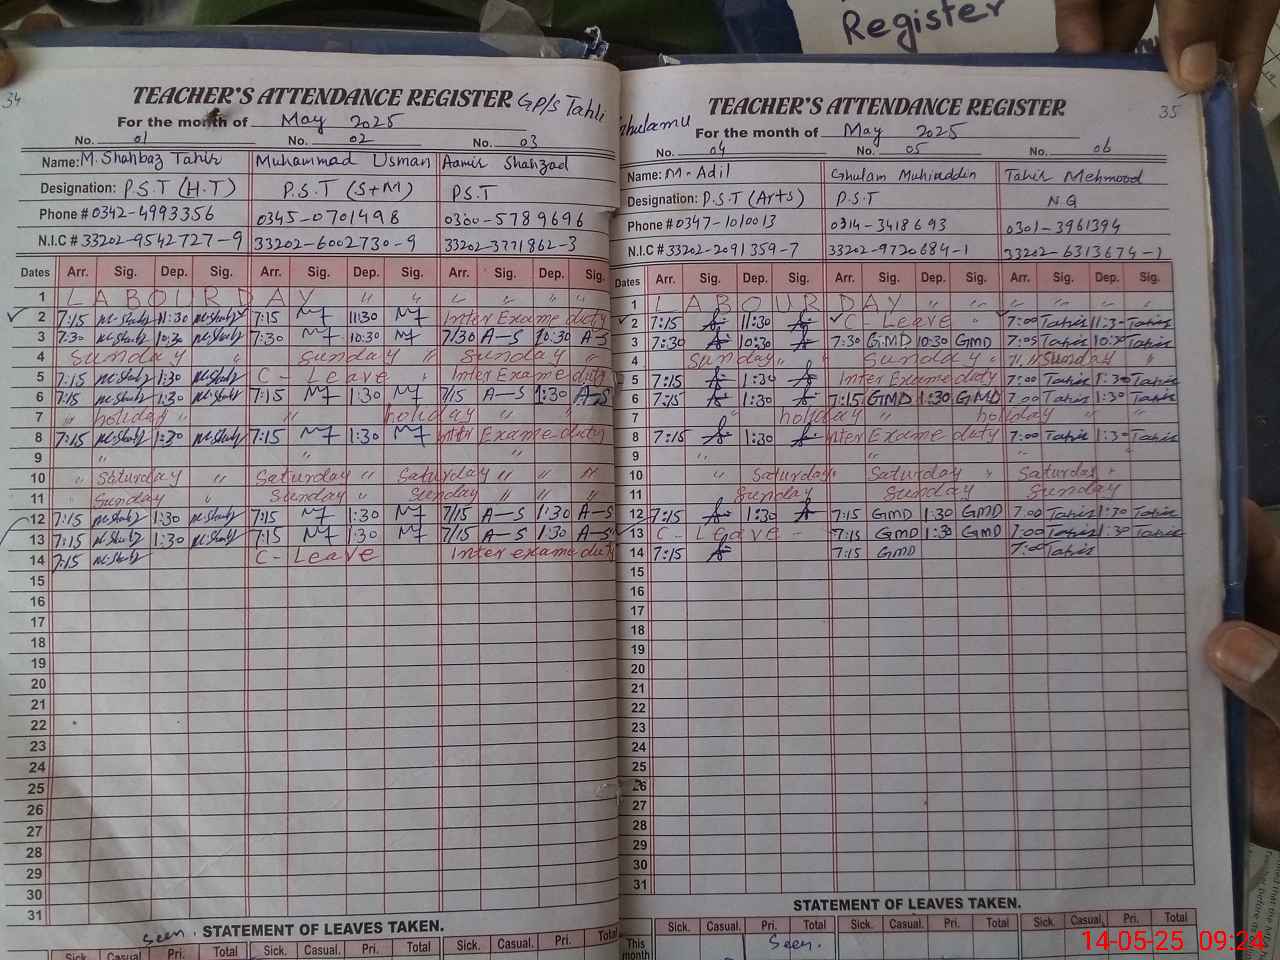 Register
34
TEACHER'S ATTENDANCE REGISTER GP/S Tahli
For the month of May 2025
No. 01 No. 02 No. 03
Name: M. Shahbaz Tahir Muhammad Usman Aamir Shahzad
Designation: P.S.T (H.T) P.S.T (S+M) PS.T
Phone # 0342-4993356 0345-0701498 0300-5789696
N.I.C # 33202-9542727-9 33202-6002730-9 33202-3771862-3
Dates Arr. Sig. Dep. Sig. Arr. Sig. Dep. Sig. Arr. Sig. Dep. Sig.
1 LABOUR DAY " " " " " "
2 7:15 11:30 7:15 11:30 Inter Exame duty
3 7:30 10:30 7:30 10:30 7/30 A-S 10:30 A-S
4 Sunday " Sunday " Sunday "
5 7:15 1:30 C-Leave " Inter Exame duty
6 7:15 1:30 7:15 1:30 7/15 A-S 1:30 A-S
7 " holiday " " holiday " "
8 7:15 1:30 7:15 1:30 Inter Exame duty
9 " " "
10 " Saturday " Saturday " Saturday " " "
11 " Sunday " Sunday " Sunday " " "
12 7:15 1:30 7:15 1:30 7/15 A-S 1:30 A-S
13 7:15 1:30 7:15 1:30 7/15 A-S 1:30 A-S
14 7:15 C-Leave Inter exame duty
15
16
17
18
19
20
21
22
23
24
25
26
27
28
29
30
31
Seen. STATEMENT OF LEAVES TAKEN.
Sick. Casual. Pri. Total Sick. Casual. Pri. Total Sick. Casual. Pri. Total
35
TEACHER'S ATTENDANCE REGISTER
For the month of May 2025
No. 04 No. 05 No. 06
Name: M. Adil Ghulam Muhiuddin Tahir Mehmood
Designation: P.S.T (Arts) P.S.T N.Q
Phone # 0347-1010013 0314-3418693 0301-3961394
N.I.C # 33202-2091359-7 33202-9720684-1 33202-6313674-1
Dates Arr. Sig. Dep. Sig. Arr. Sig. Dep. Sig. Arr. Sig. Dep. Sig.
1 LABOUR DAY " " " " " "
2 7:15 11:30 C-Leave " 7:00 Tahir 11:3- Tahir
3 7:30 10:30 7:30 GMD 10:30 GMD 7:05 Tahir Tahir
4 Sunday " Sunday " Sunday "
5 7:15 1:30 Inter Exame duty 7:00 Tahir 1:30 Tahir
6 7:15 1:30 7:15 GMD 1:30 GMD 7:00 Tahir 1:30 Tahir
7 " holiday " holiday "
8 7:15 1:30 Inter Exame duty 7:00 Tahir 1:30 Tahir
9 " " "
10 Saturday " Saturday " Saturday "
11 Sunday Sunday Sunday
12 7:15 1:30 7:15 GMD 1:30 GMD 7:00 Tahir 1:30 Tahir
13 C-Leave - 7:15 GMD 1:30 GMD 7:00 Tahir 1:30 Tahir
14 7:15 7:15 GMD 7:00 Tahir
15
16
17
18
19
20
21
22
23
24
25
26
27
28
29
30
31
STATEMENT OF LEAVES TAKEN.
Sick. Casual. Pri. Total Sick. Casual. Pri. Total Sick. Casual. Pri. Total
This month Seen.
14-05-25 09:24